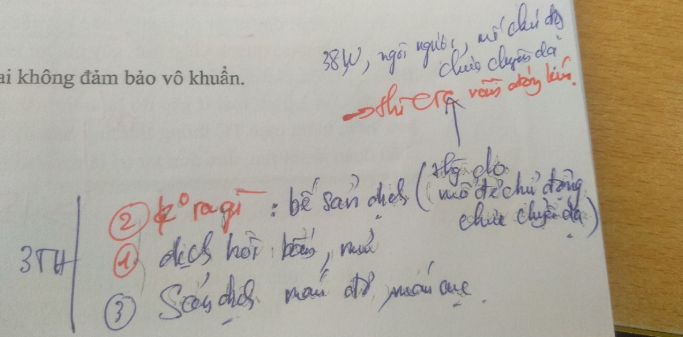 ai không đảm bảo vô khuẩn.
38W, ngôi ngược, mổ chủ động
chưa chuyển dạ
→ thì CTC vẫn đóng kín.
② k° ra gì : bế sản dịch (thg do
mổ đẻ chủ động
chưa chuyển dạ)
3TH
① dịch hôi bẩn, mủ
③ Sản dịch máu đỏ, máu cục.